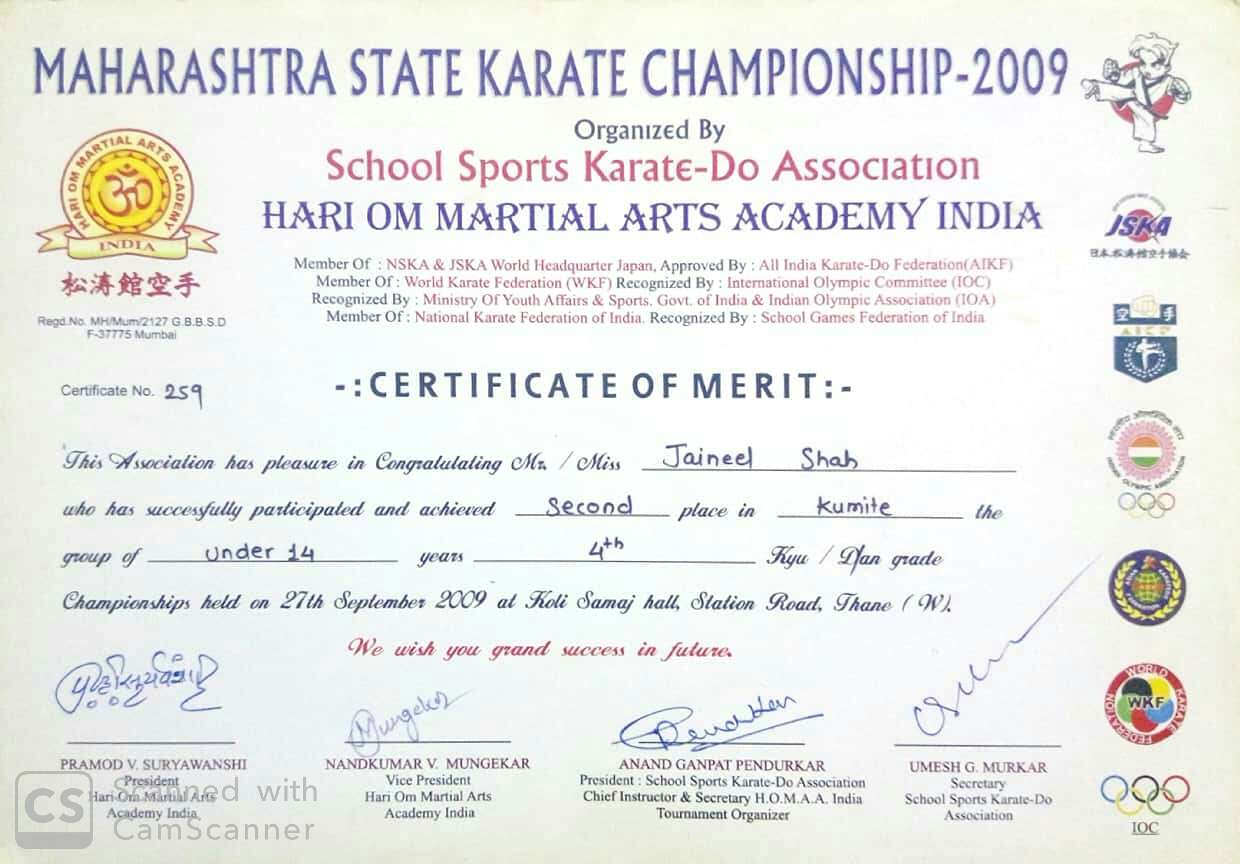 MAHARASHTRA STATE KARATE CHAMPIONSHIP-2009
Organized By
School Sports Karate-Do Association
HARI OM MARTIAL ARTS ACADEMY INDIA
HARI OM MARTIAL ARTS ACADEMY
INDIA
松涛館空手
Regd.No. MH/Mum/2127 G.B.B.S.D
F-37775 Mumbai
Member Of : NSKA & JSKA World Headquarter Japan, Approved By : All India Karate-Do Federation(AIKF)
Member Of : World Karate Federation (WKF) Recognized By : International Olympic Committee (IOC)
Recognized By : Ministry Of Youth Affairs & Sports. Govt. of India & Indian Olympic Association (IOA)
Member Of : National Karate Federation of India. Recognized By : School Games Federation of India
JSKA
日本松涛館空手協会
空手
AIKF
Certificate No. 259
-:CERTIFICATE OF MERIT:-
This Association has pleasure in Congratulating Mr. / Miss Jaineel Shah
who has successfully participated and achieved Second place in Kumite the
group of under 14 years 4th Kyu / Dan grade
Championships held on 27th September 2009 at Koli Samaj hall, Station Road, Thane (W).
We wish you grand success in future.
INDIAN OLYMPIC ASSOCIATION
WORLD KARATE FEDERATION
WKF
Mungekar
PRAMOD V. SURYAWANSHI
President
Hari Om Martial Arts
Academy India
NANDKUMAR V. MUNGEKAR
Vice President
Hari Om Martial Arts
Academy India
ANAND GANPAT PENDURKAR
President : School Sports Karate-Do Association
Chief Instructor & Secretary H.O.M.A.A. India
Tournament Organizer
UMESH G. MURKAR
Secretary
School Sports Karate-Do
Association
IOC
CS
Scanned with
CamScanner